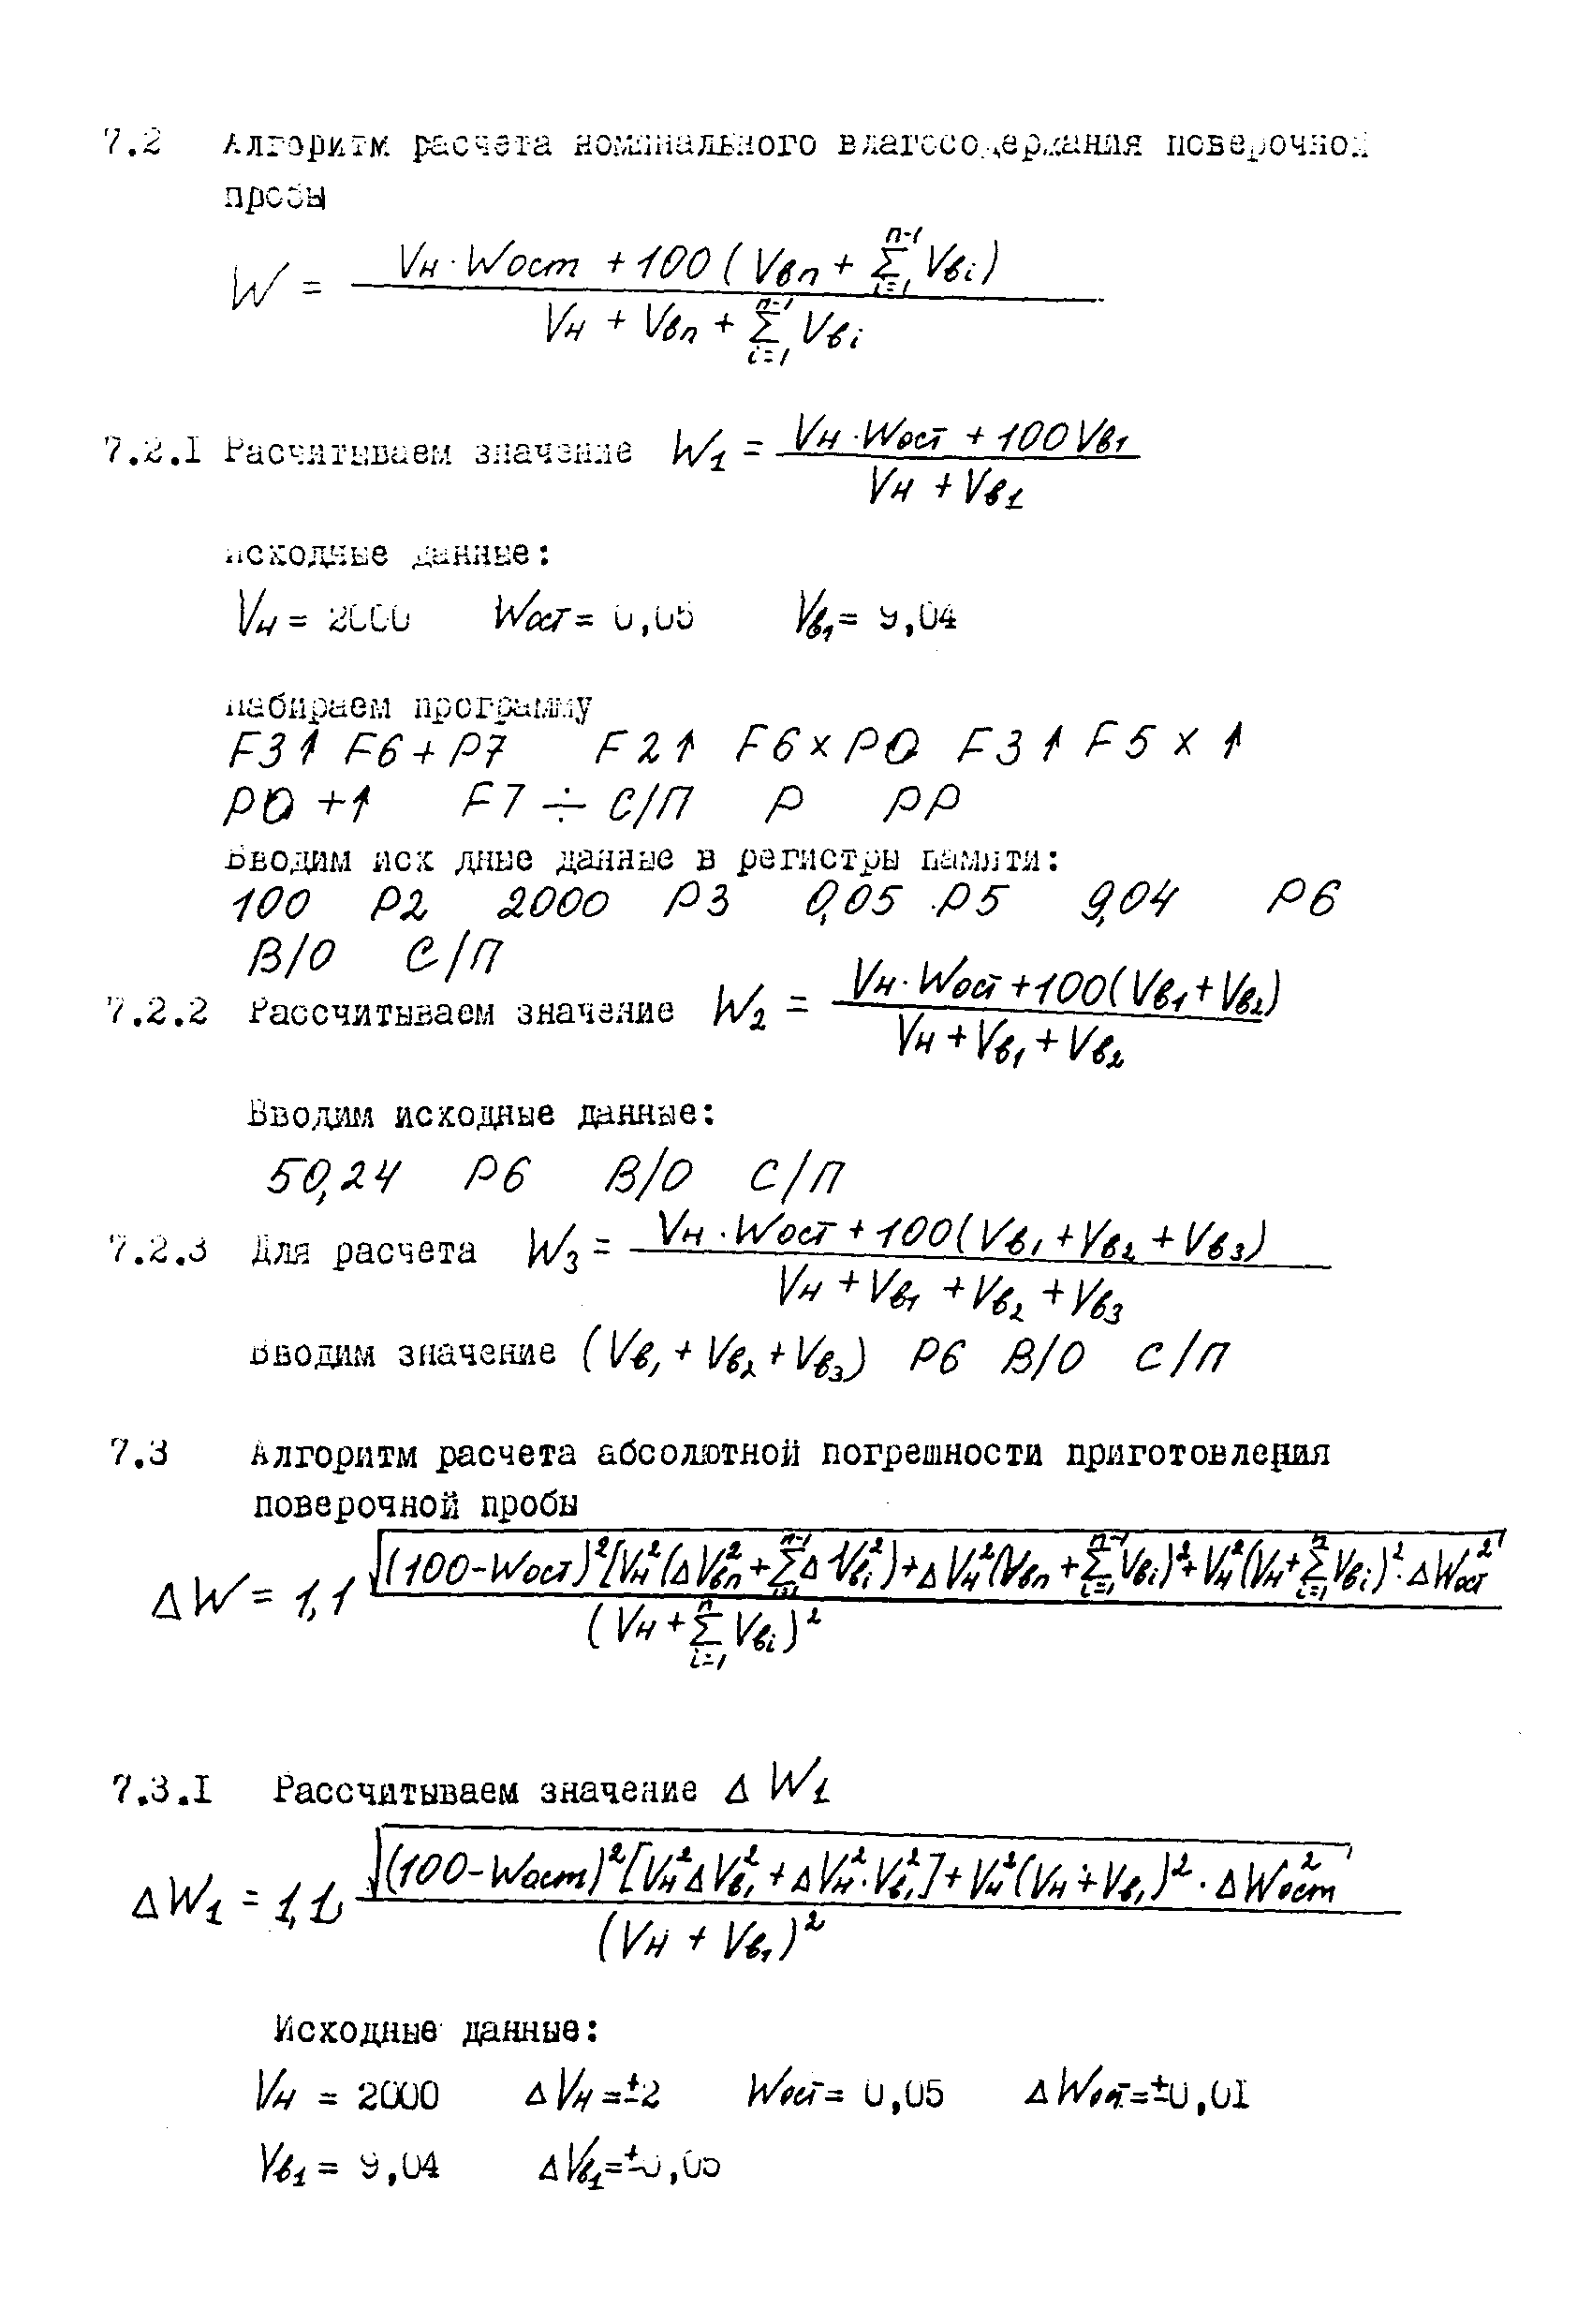 7.2 Алгоритм расчета номинального влагосодержания поверочной
пробы
W = (Vн · Wост + 100 ( Vвп + Σ_{i=1}^{n-1} Vвi )) / (Vн + Vвп + Σ_{i=1}^{n-1} Vвi)
7.2.I Расчитываем значение W1 = (Vн · Wост + 100 Vв1) / (Vн + Vв1)
исходные данные:
Vн = 2000 Wост = 0,05 Vв1 = 9,04
набираем программу
F3↑ F6 + P7 F2↑ F6 × P0 F3↑ F5 × ↑
P0 + ↑ F7 ÷ С/П P PP
Вводим исх дные данные в регистры памяти:
100 P2 2000 P3 0,05 P5 9,04 P6
В/О С/П
7.2.2 Рассчитываем значение W2 = (Vн · Wост + 100(Vв1 + Vв2)) / (Vн + Vв1 + Vв2)
Вводим исходные данные:
50,24 P6 В/О С/П
7.2.3 Для расчета W3 = (Vн · Wост + 100(Vв1 + Vв2 + Vв3)) / (Vн + Vв1 + Vв2 + Vв3)
Вводим значение (Vв1 + Vв2 + Vв3) P6 В/О С/П
7.3 Алгоритм расчета абсолютной погрешности приготовления
поверочной пробы
ΔW = 1,1 √((100 - Wост)²[Vн²(ΔVвп² + Σ_{i=1}^{n-1} ΔVвi²) + ΔVн²(Vвп + Σ_{i=1}^{n-1} Vвi)² + Vн²(Vн + Σ_{i=1}^{n} Vвi)² · ΔWост²) / (Vн + Σ_{i=1}^{n} Vвi)²
7.3.I Рассчитываем значение ΔW1
ΔW1 = 1,1 √((100 - Wост)²[Vн² ΔVв1² + ΔVн² · Vв1²] + Vн²(Vн + Vв1)² · ΔWост²) / (Vн + Vв1)²
Исходные данные:
Vн = 2000 ΔVн = ±2 Wост = 0,05 ΔWост = ±0,01
Vв1 = 9,04 ΔVв1 = ±0,05